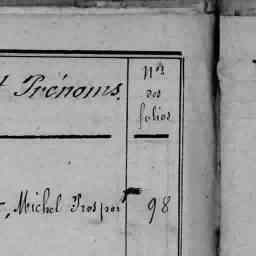 t Prénoms.
Nos
des
folios
, Michel Prosper
98